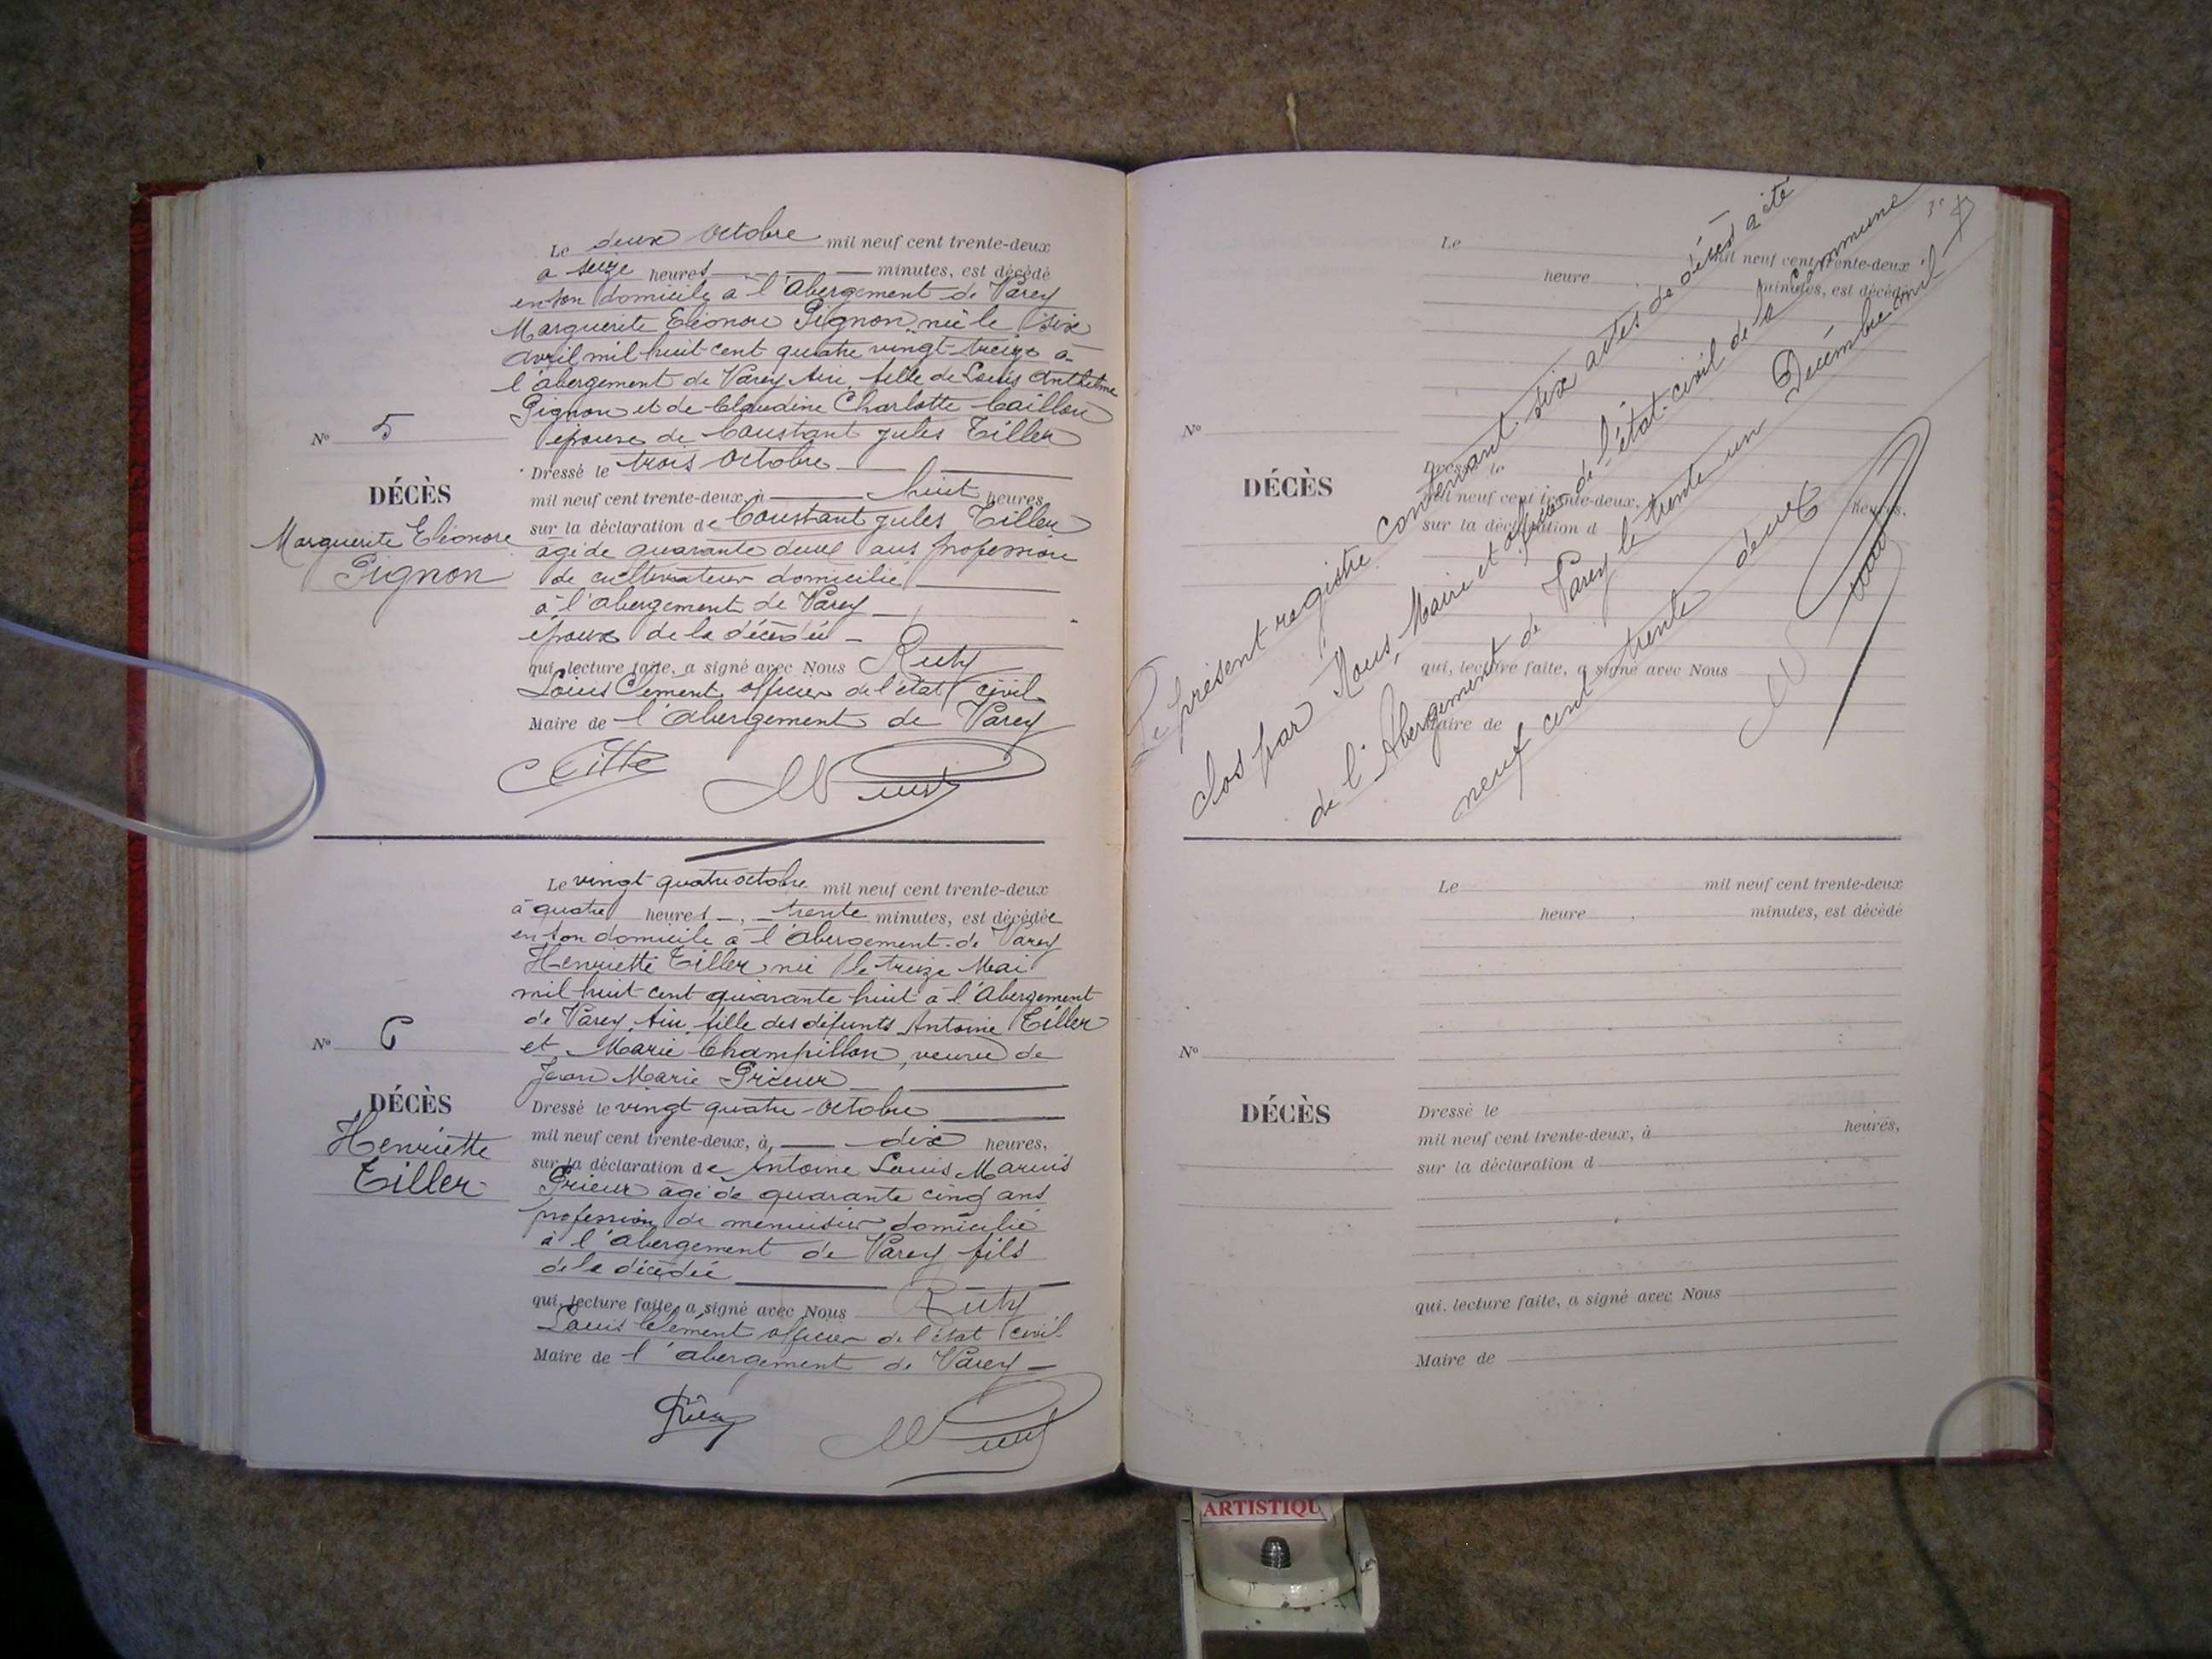 Le deux Octobre mil neuf cent trente-deux
a seize heures — — — minutes, est décédé
en son domicile à l'Abergement de Varey
Marguerite Eléonore Pignon née le six
Avril mil huit cent quatre vingt-treize à
l'abergement de Varey Ain, fille de Louis Anthelme
Pignon et de Claudine Charlotte Caillon
épouse de Constant Jules Tiller
Nº 5
Dressé le trois Octobre
DÉCÈS
mil neuf cent trente-deux, à huit heures
sur la déclaration de Constant Jules Tiller
Marguerite Eléonore
Pignon
âgé de quarante deux ans profession
de cultivateur domicilié
à l'abergement de Varey
époux de la décédée
qui, lecture faite, a signé avec Nous Ruty
Louis Clément, officier de l'état civil
Maire de l'abergement de Varey
Le vingt quatre octobre mil neuf cent trente-deux
à quatre heures, trente minutes, est décédée
en son domicile à l'Abergement de Varey
Henriette Tiller née le treize Mai
mil huit cent quarante huit à l'Abergement
de Varey, Ain, fille des défunts Antoine Tiller
et Marie Champillon, veuve de
Jean Marie Prieur
Nº 6
Dressé le vingt quatre Octobre
DÉCÈS
mil neuf cent trente-deux, à, dix heures,
Henriette
Tiller
sur la déclaration de Antoine Louis Marius
Prieur âgé de quarante cinq ans
profession de menuisier domicilié
à l'abergement de Varey fils
de la décédée
qui, lecture faite, a signé avec Nous Ruty
Louis Clément officier de l'état civil
Maire de l'abergement de Varey
Le mil neuf cent trente-deux
heure minutes, est décédé
Nº
DÉCÈS
Dressé le
mil neuf cent trente-deux, heures,
sur la déclaration d
qui, lecture faite, a signé avec Nous
Maire de
Le présent registre contenant six actes de décès a été
clos par Nous, Maire et officier de l'état-civil de la Commune
de l'Abergement de Varey le trente un Décembre mil
neuf cent trente deux
Le mil neuf cent trente-deux
heure , minutes, est décédé
Nº
DÉCÈS
Dressé le
mil neuf cent trente-deux, à heures,
sur la déclaration d
qui, lecture faite, a signé avec Nous
Maire de
ARTISTIQU